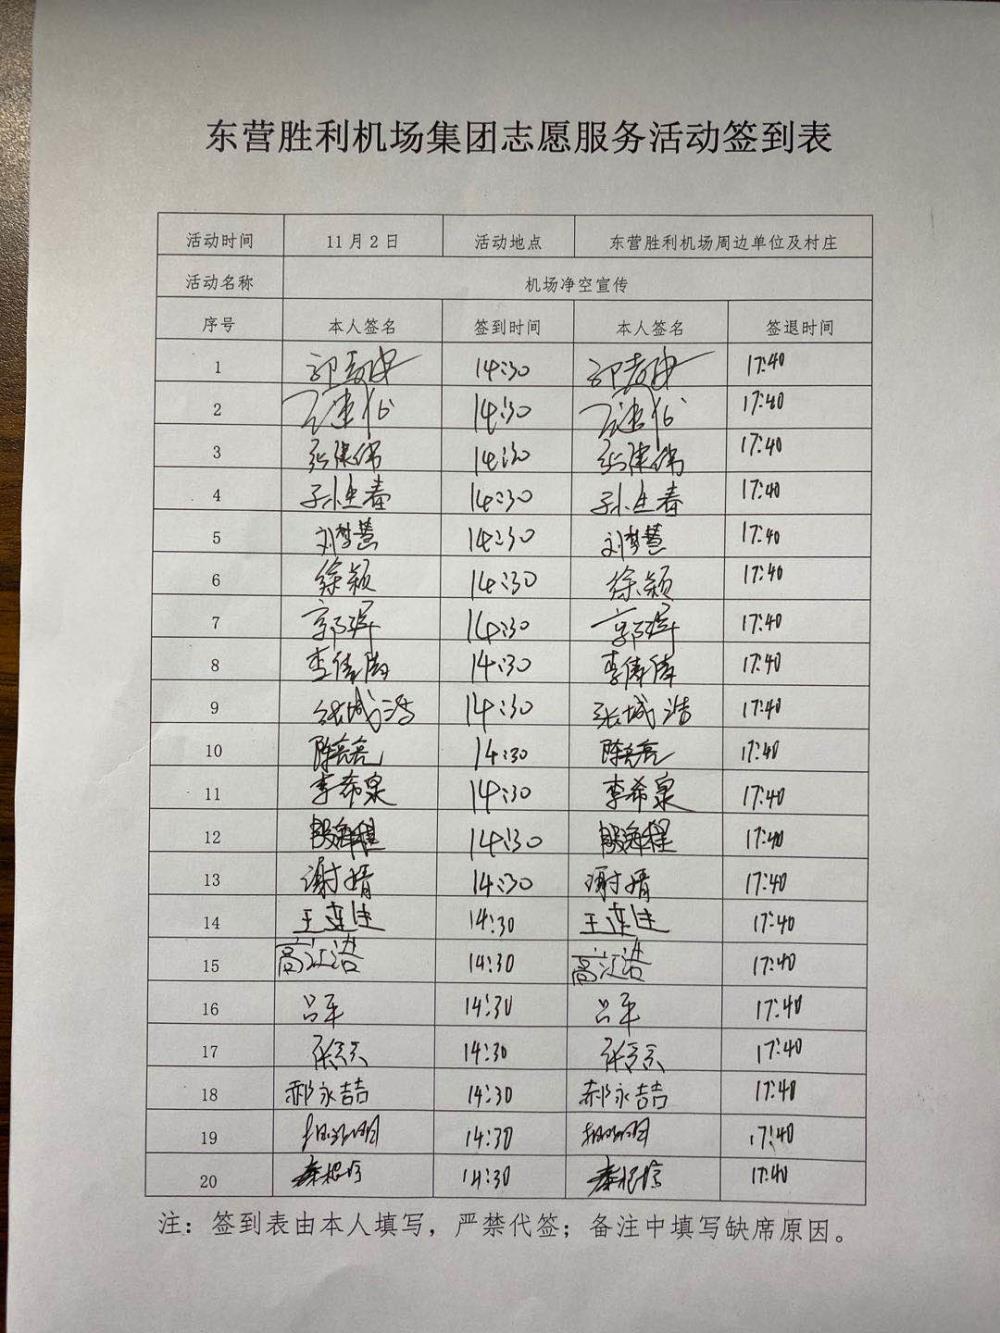 东营胜利机场集团志愿服务活动签到表
活动时间 11月2日 活动地点 东营胜利机场周边单位及村庄
活动名称 机场净空宣传
序号 本人签名 签到时间 本人签名 签退时间
1 14:30 17:40
2 14:30 17:40
3 张健伟 14:30 张健伟 17:40
4 孙生春 14:30 孙生春 17:40
5 刘梦慧 14:30 刘梦慧 17:40
6 徐颖 14:30 徐颖 17:40
7 郭晖 14:30 郭晖 17:40
8 14:30 17:40
9 张城浩 14:30 张城浩 17:40
10 陈亮亮 14:30 陈亮亮 17:40
11 李希泉 14:30 李希泉 17:40
12 14:30 17:40
13 谢婧 14:30 谢婧 17:40
14 王连进 14:30 王连进 17:40
15 高江浩 14:30 高江浩 17:40
16 吕平 14:30 吕平 17:40
17 14:30 17:40
18 郝永喆 14:30 郝永喆 17:40
19 14:30 17:40
20 14:30 17:40
注：签到表由本人填写，严禁代签；备注中填写缺席原因。